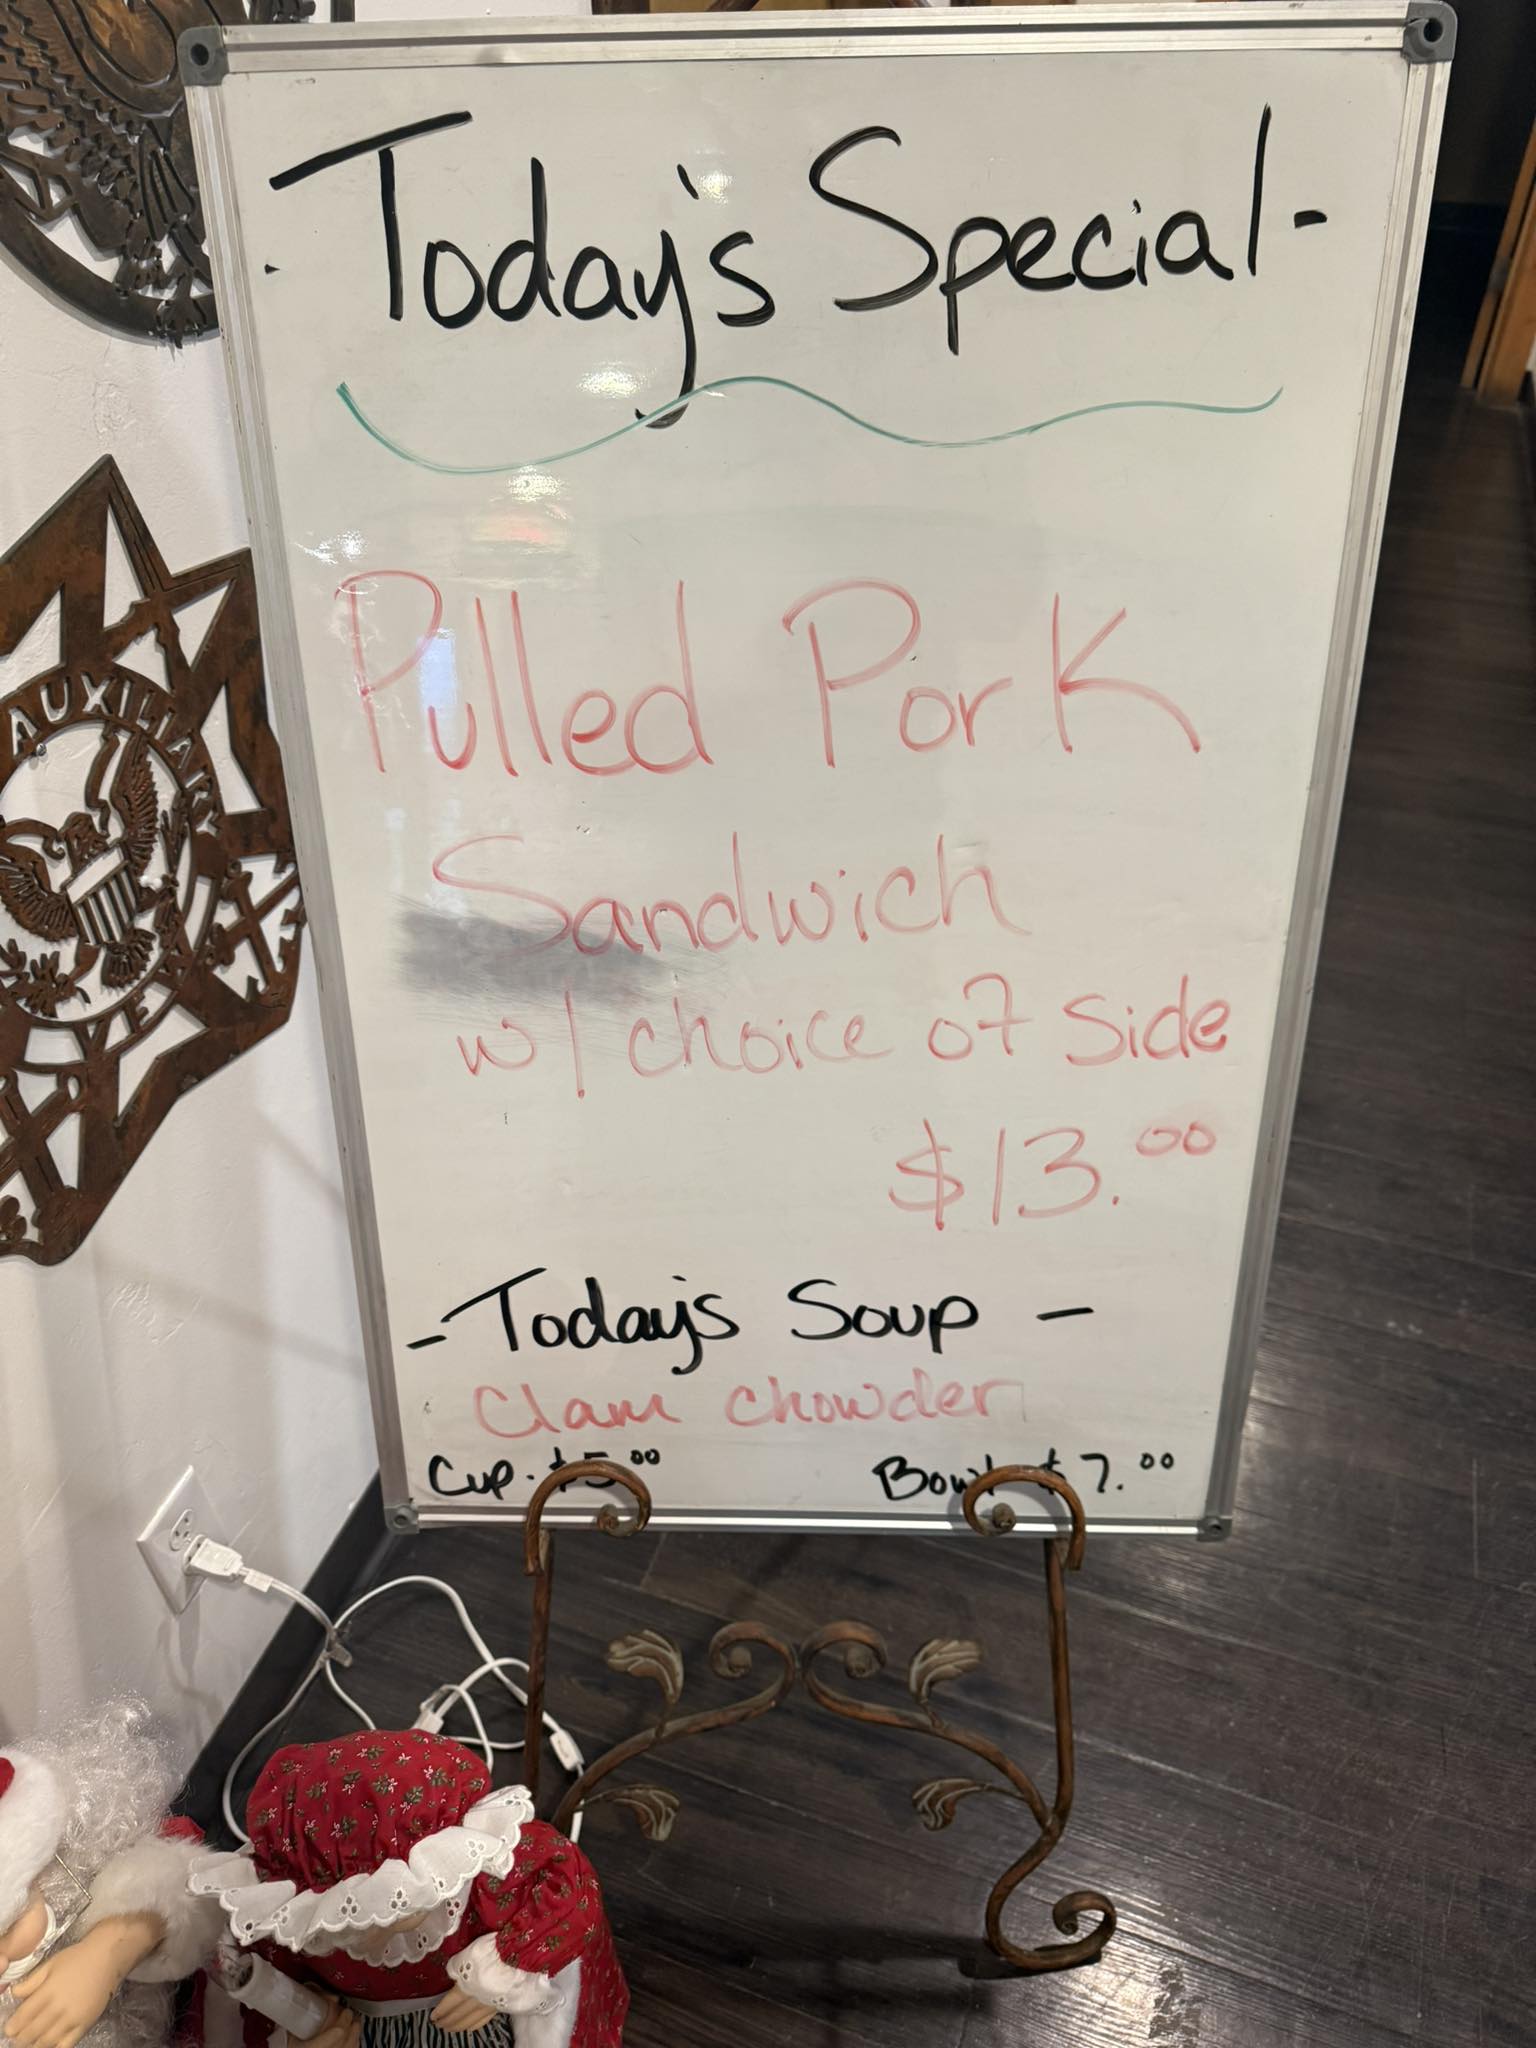 - Today's Special -
Pulled Pork
Sandwich
w/ choice of side
$13.00
- Today's Soup -
Clam chowder
Cup. $5.00 Bowl $7.00
AUXILIARY